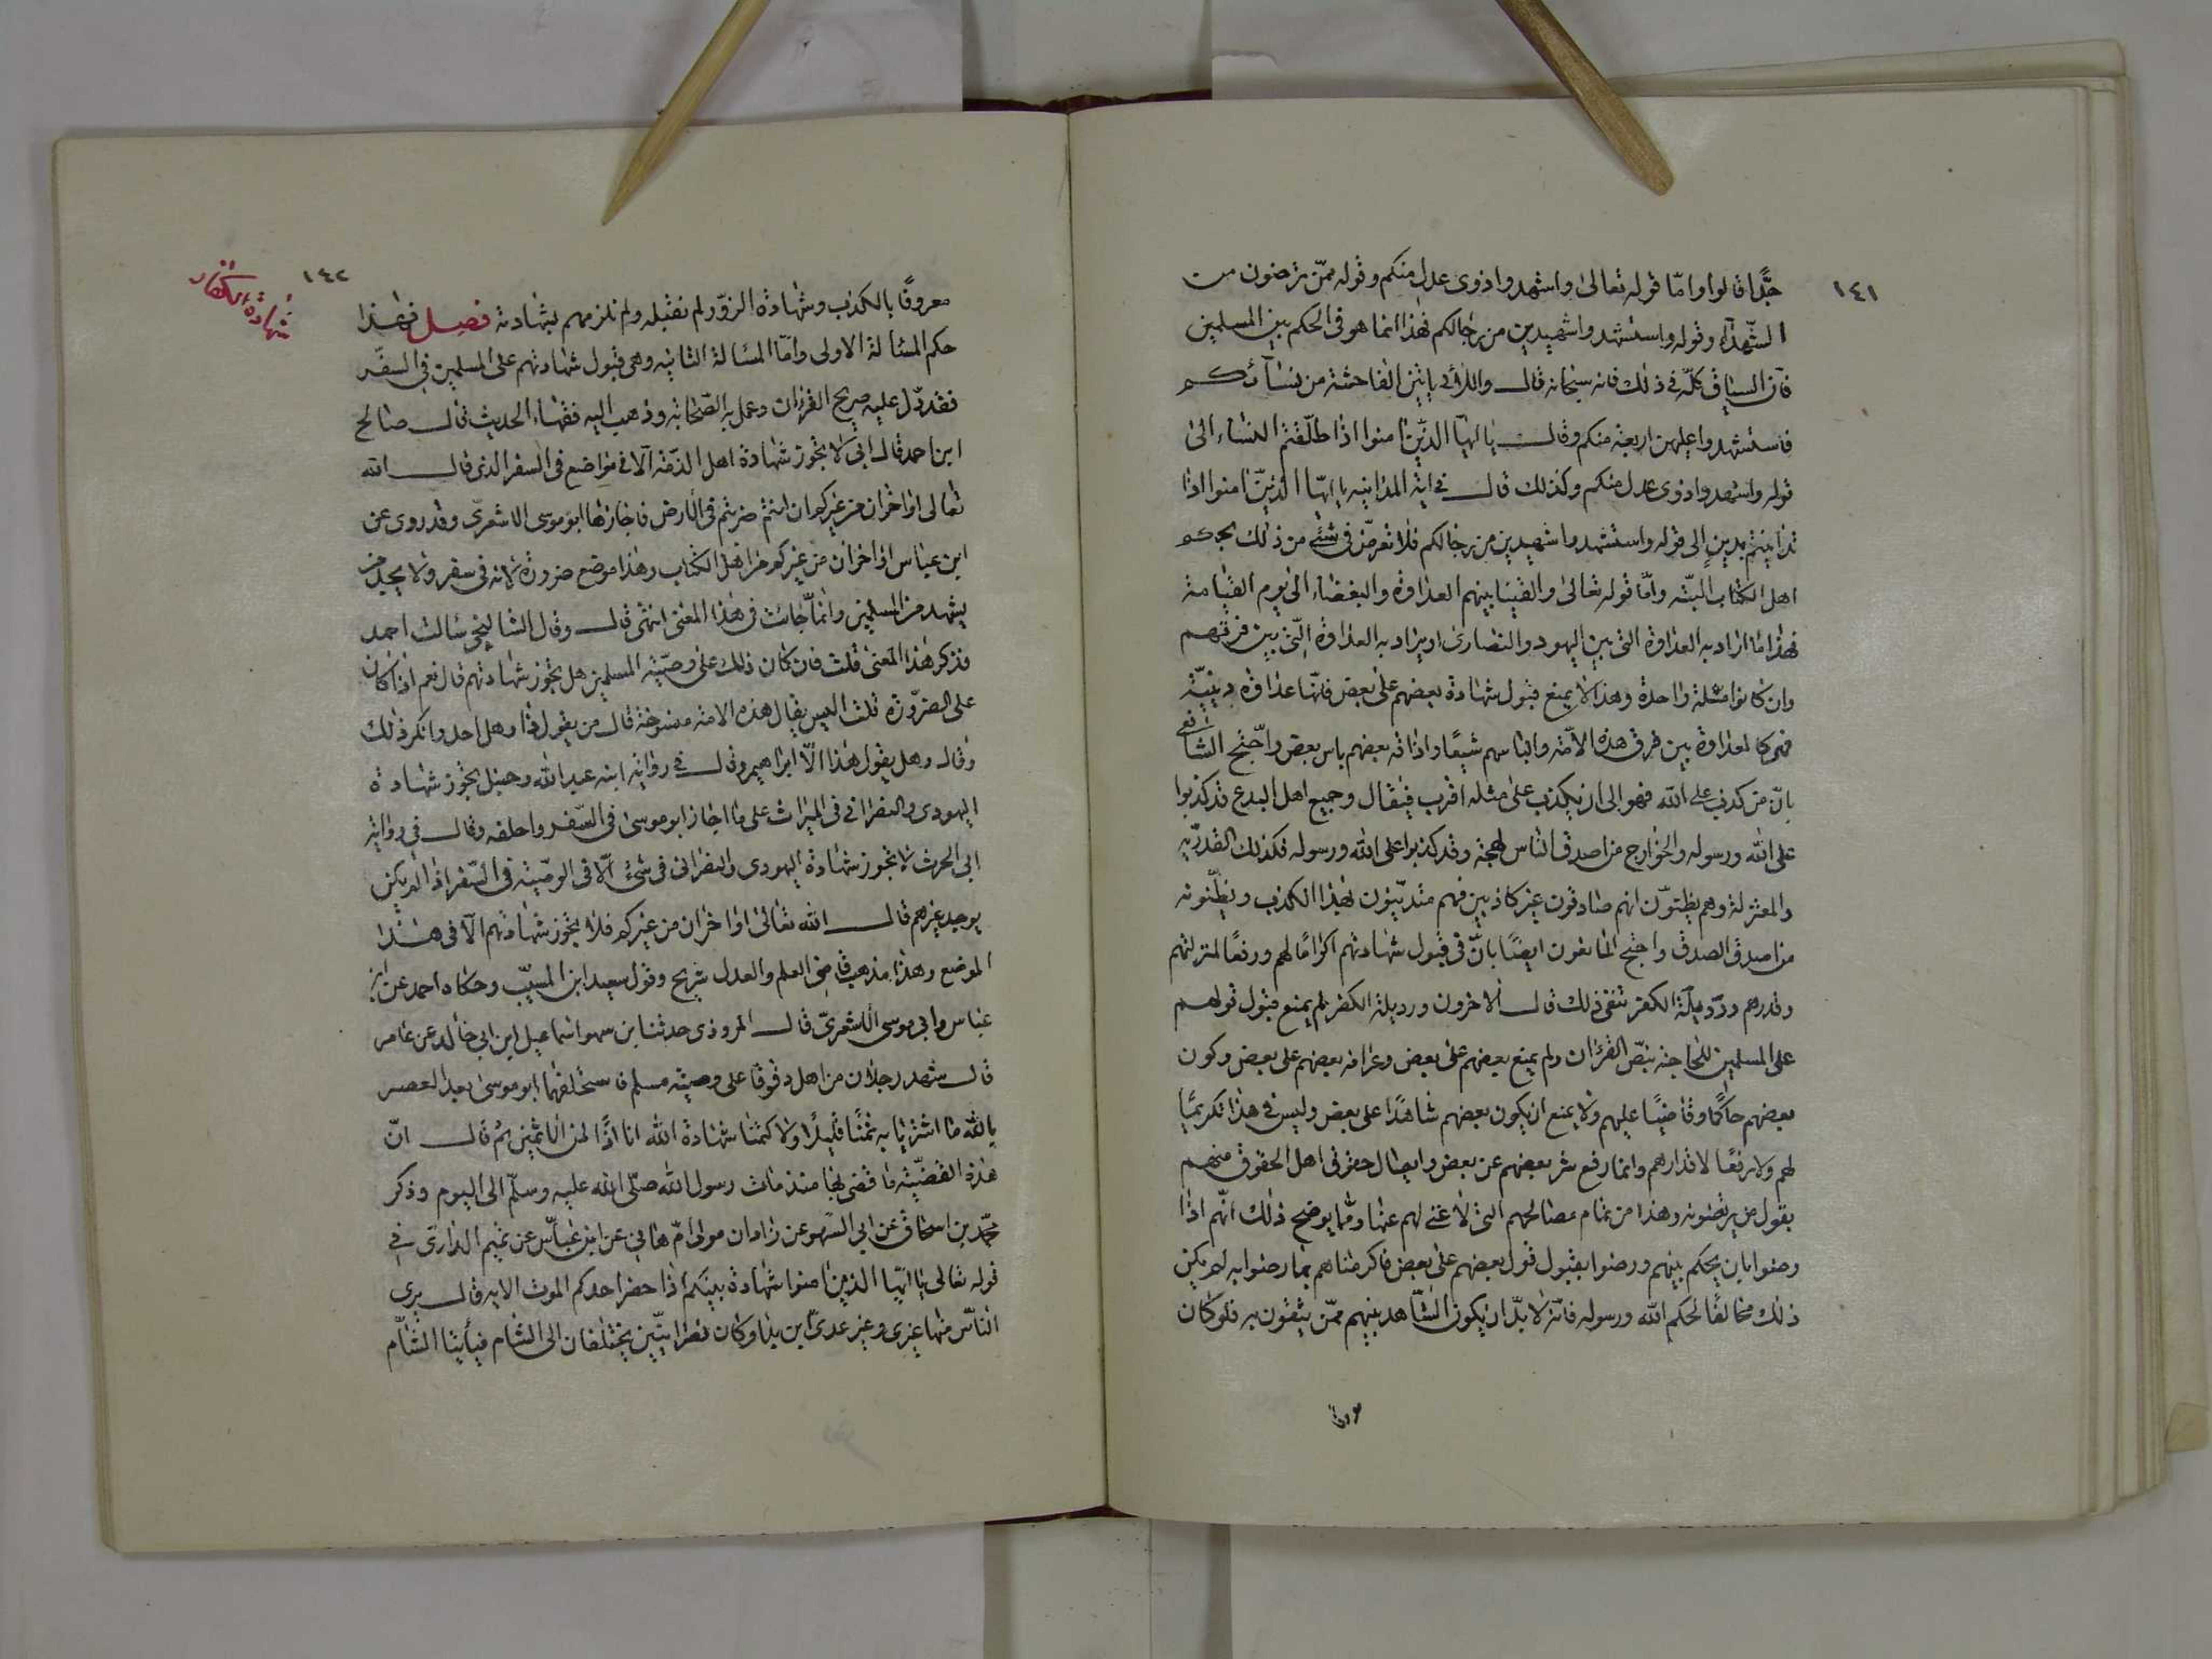 ١٤١
جدًّا قالوا وامّا قوله تعالى واشهدوا ذوى عدل منكم وقوله ممّن ترضون من
الشّهدآء وقوله واستشهدوا شهيدين من رجالكم فهذا انما هو فى الحكم بين المسلمين
فانّ السياق كلّه فى ذلك فانه سبحانه قال واللاتى ياتين الفاحشة من نسآئكم
فاستشهدوا عليهن اربعة منكم وقال يا ايهّا الذّين امنوا اذا طلّقتم النساء الى
قوله واشهدوا ذوى عدل منكم وكذلك قال فى اية المداينه يا ايهّا الذيّن امنوا اذا
تداينتم بدينٍ الى قوله واستشهدوا شهيدين من رجالكم فلا تعرّض فى شئ من ذلك بحكم
اهل الكتاب البتّه وامّا قوله تعالى والقينا بينهم العداوة والبغضاء الى يوم القيامة
فهذا اما اراد به العداوة التى بين اليهود والنصارى او يراد به العداوة الّتى بين فرقهم
وان كانوا ملة واحدة وهذا لا يمنع قبول شهادة بعضهم على بعض فانّها عداوة دينيّة
فهى كالعداوة بين فرق هذه الامّة والباسهم شيعًا واذاقة بعضهم باس بعض واحّتج الشافعى
بانّ من كذب على الله فهو الى ان يكذب على مثله اقرب فيقال وجميع اهل البدع قد كذبوا
على الله ورسوله والخوارج من اصدق الناس لهجة وقد كذبوا على الله ورسوله فكذلك القدريّه
والمعتزلة وهم يظنّون انهم صادقون غير كاذبين فهم متديّنون بهذا الكذب ويظنّونه
من اصدق الصدق واحتج المانعون ايضًا بانّ فى قبول شهادتهم اكرامًا لهم ورفعًا لمنزلتهم
وقدرهم ورذيلة الكفر تنفى ذلك قال الاخرون ورذيلة الكفر لم يمنع قبول قولهم
على المسلمين للحاجة بنصّ القرءان ولم يمنع بعضهم على بعض وعرافة بعضهم على بعض وكون
بعضهم حاكمًا وقاضيًا عليهم ولا يمنع ان يكون بعضهم شاهدًا على بعض وليس فى هذا تكريمًا
لهم ولا رفعًا لاقدارهم وانما رفع شر بعضهم عن بعض وايصال حقوق اهل الحقوق منهم
بقول من يرتضونه وهذا من تمام مصالحهم التى لا غنى لهم عنها وممّا يوضح ذلك انّهم اذا
رضوا بان يحكم بينهم ورضوا بقبول قول بعضهم على بعض فالزمناهم بما رضوا به لم يكن
ذلك مخالفًا لحكم الله ورسوله فانّه لا بدّ ان يكون الشّاهد بينهم ممّن يثقون به فلو كان
١٤٢
شهادة الكفار
معروفًا بالكذب وشهادة الزوّر لم نقبله ولم نلزمهم بشهادته فصل فهذا
حكم المسئالة الاولى وامّا المسئالة الثانيه وهى قبول شهادتهم على المسلمين فى السفر
فقد دّل عليه صريح القرءان وعمل به الصّحابة وذهب اليه فقهاء الحديث قال صالح
ابن احمد قال ابى لا تجوز شهادة اهل الذمّة الّا فى مواضع فى السفر الذى قال الله
تعالى او اخران من غيركم ان انتم ضربتم فى الارض فاجازها ابو موسى الاشعرىّ وقد روى عن
ابن عباس او اخران من غيركم من اهل الكتاب وهذا موضع ضرورة لانه فى سفر ولا يجد من
يشهد من المسلمين وانّما جائت فى هذا المعنى انتهى قال وقال الشالنجى سئالت احمد
فذكر هذا المعنى قلت فان كان ذلك على وصيّة المسلمين هل تجوز شهادتهم قال نعم اذا كان
على الضرّورة قلت اليس يقال هذه الاية منسوخة قال من يقول ذا وهل احد وانكر ذلك
وقال وهل يقول هذا الّا ابراهيم وقال فى رواية ابنه عبد الله وحنبل تجوز شهادة
اليهودى والنصرانى فى الميراث على ما اجاز ابو موسى فى السّفر واحلفه وقال فى رواية
ابى الحرث لا تجوز شهادة اليهودى والنصرانى فى شئ الّا فى الوصّية فى السّفر اذا لم يكن
يوجد غيرهم قال الله تعالى او اخران من غيركم فلا تجوز شهادتهم الّا فى هذا
الموضع وهذا مذهب قاضى العلم والعدل شريح وقول سعيد ابن المسيّب وحكاه احمد عن ابن
عباس وابى موسى الاشعرىّ قال المروذى حدثنا ابن اسماعيل ابن ابى خالد عن عامر
قال شهد رجلان من اهل دقوقا على وصية مسلم فاستحلفهما ابو موسى بعد العصر
بالله ما اشترينا به ثمنًا قليلًا ولا كتمنا شهادة الله انا اذًا لمن الاثمين ثم قال انّ
هذه القضيّة ما قضى بها منذ مات رسول الله صلّى الله عليه وسلّم الى اليوم وذكر
محّمد بن اسحاق عن ابى النّضر عن زادان مولى امّ هانى عن ابن عبّاس عن تميم الدارىّ فى
قوله تعالى يا ايّها الذين امنوا شهادة بينكم اذا حضر احدكم الموت الايه قال برى
الناّس منها غيرى وغير عدىّ ابن بدا وكان نصرانيّين يختلفان الى الشام فيأتيا الشّام